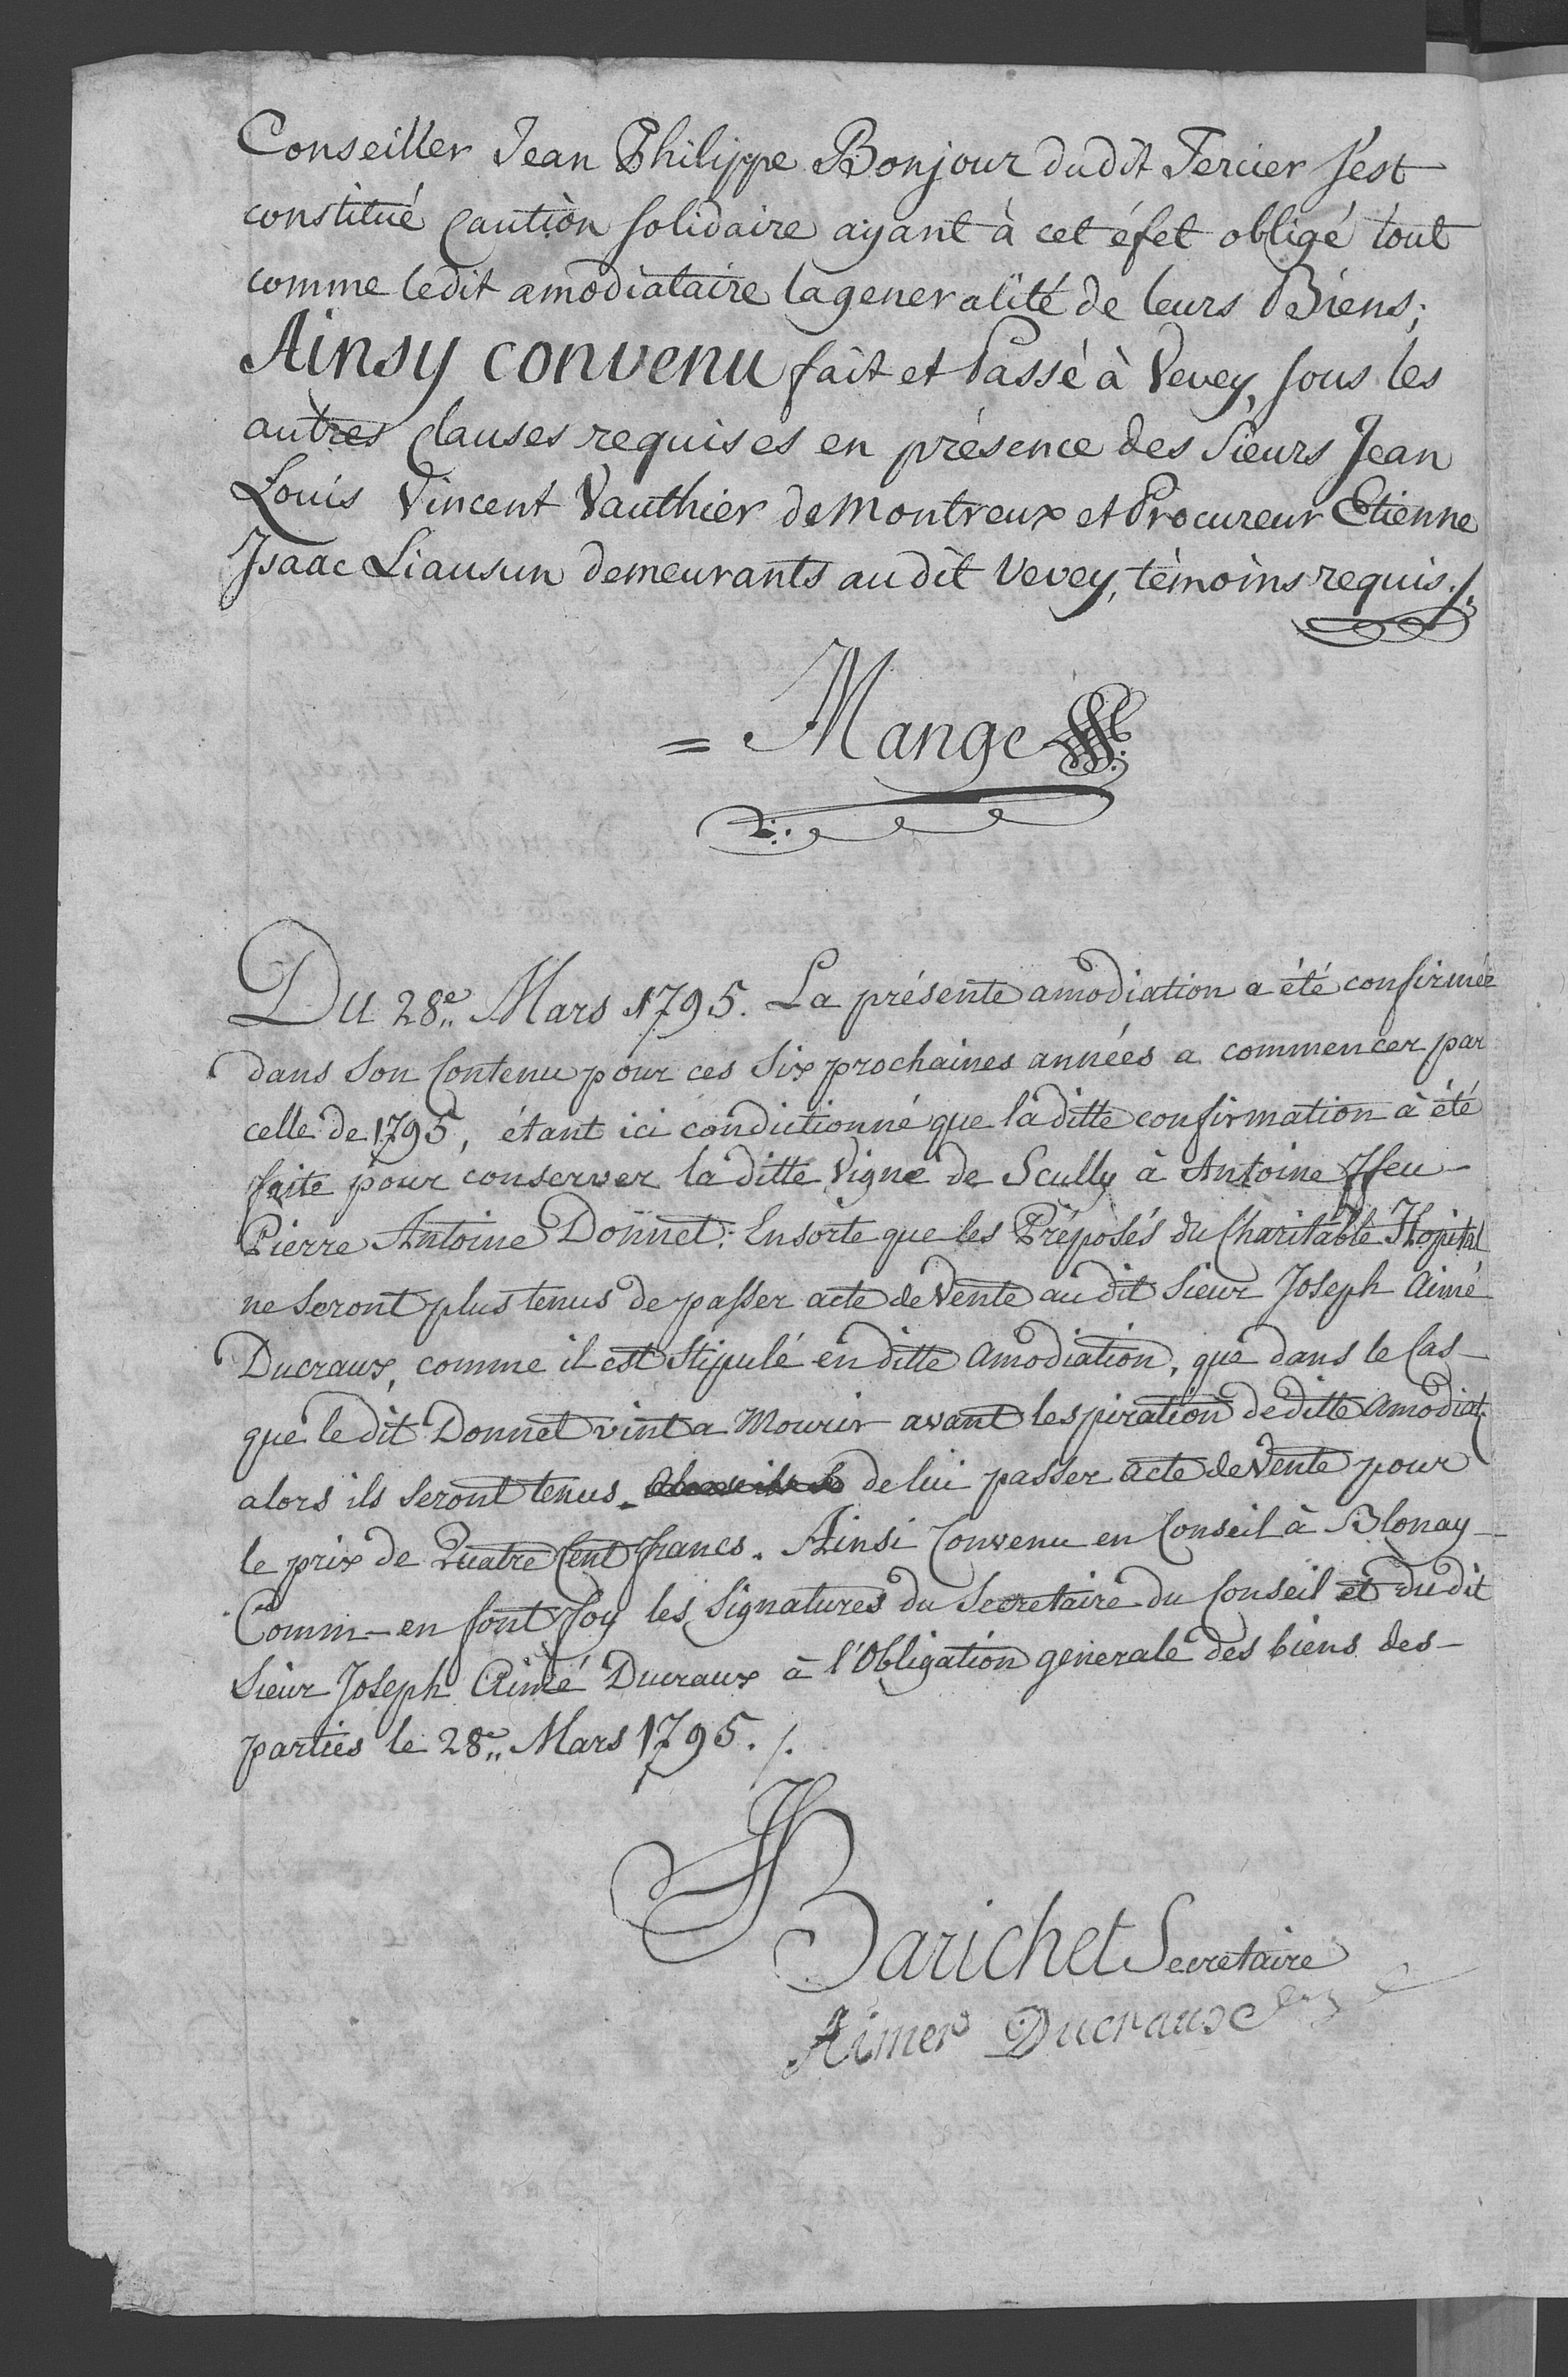 Conseiller Jean Philippe Bonjour dudit Tercier s'est
constitué Caution solidaire ayant à cet éfet obligé tout
comme ledit amodiataire la generalité de leurs Biens;
Ainsy convenu fait et Passé à Vevey, sous les
autres Clauses requises en présence des Sieurs Jean
Louis Vincent Vauthier de Montreux et Procureur Etienne
Isaac Liausun demeurants audit Vevey, témoins requis ./.
= Mange
Du 28e. Mars 1795. La présente amodiation a été confirmée
dans Son Contenu pour ces Six prochaines années a commencer par
celle de 1795, étant ici condictionné que laditte confirmation à été
faite pour conserver la ditte Vigne de Scully à Antoine ffeu
Pierre Antoine Donnet: Ensorte que les Préposés du Charitable Hopital
ne Seront plus tenus de passer acte de Vente au dit Sieur Joseph Aimé
Ducraux, comme il est Stipulé en ditte Amodiation, que dans le Cas
que le dit Donnet vint a Mourir avant lespiration de ditte Amodiat.
alors ils Seront tenus de lui passer Acte de Vente pour
le prix de Quatre Cent francs. Ainsi Convenu en Conseil à Blonay
Comm- en font foy les Signatures du Secretaire du Conseil et du dit
Sieur Joseph Aimé Ducraux à l'Obligation generale des biens des
parties le 28e. Mars 1795. /.
Barichet Secretaire
Aimer Ducraux